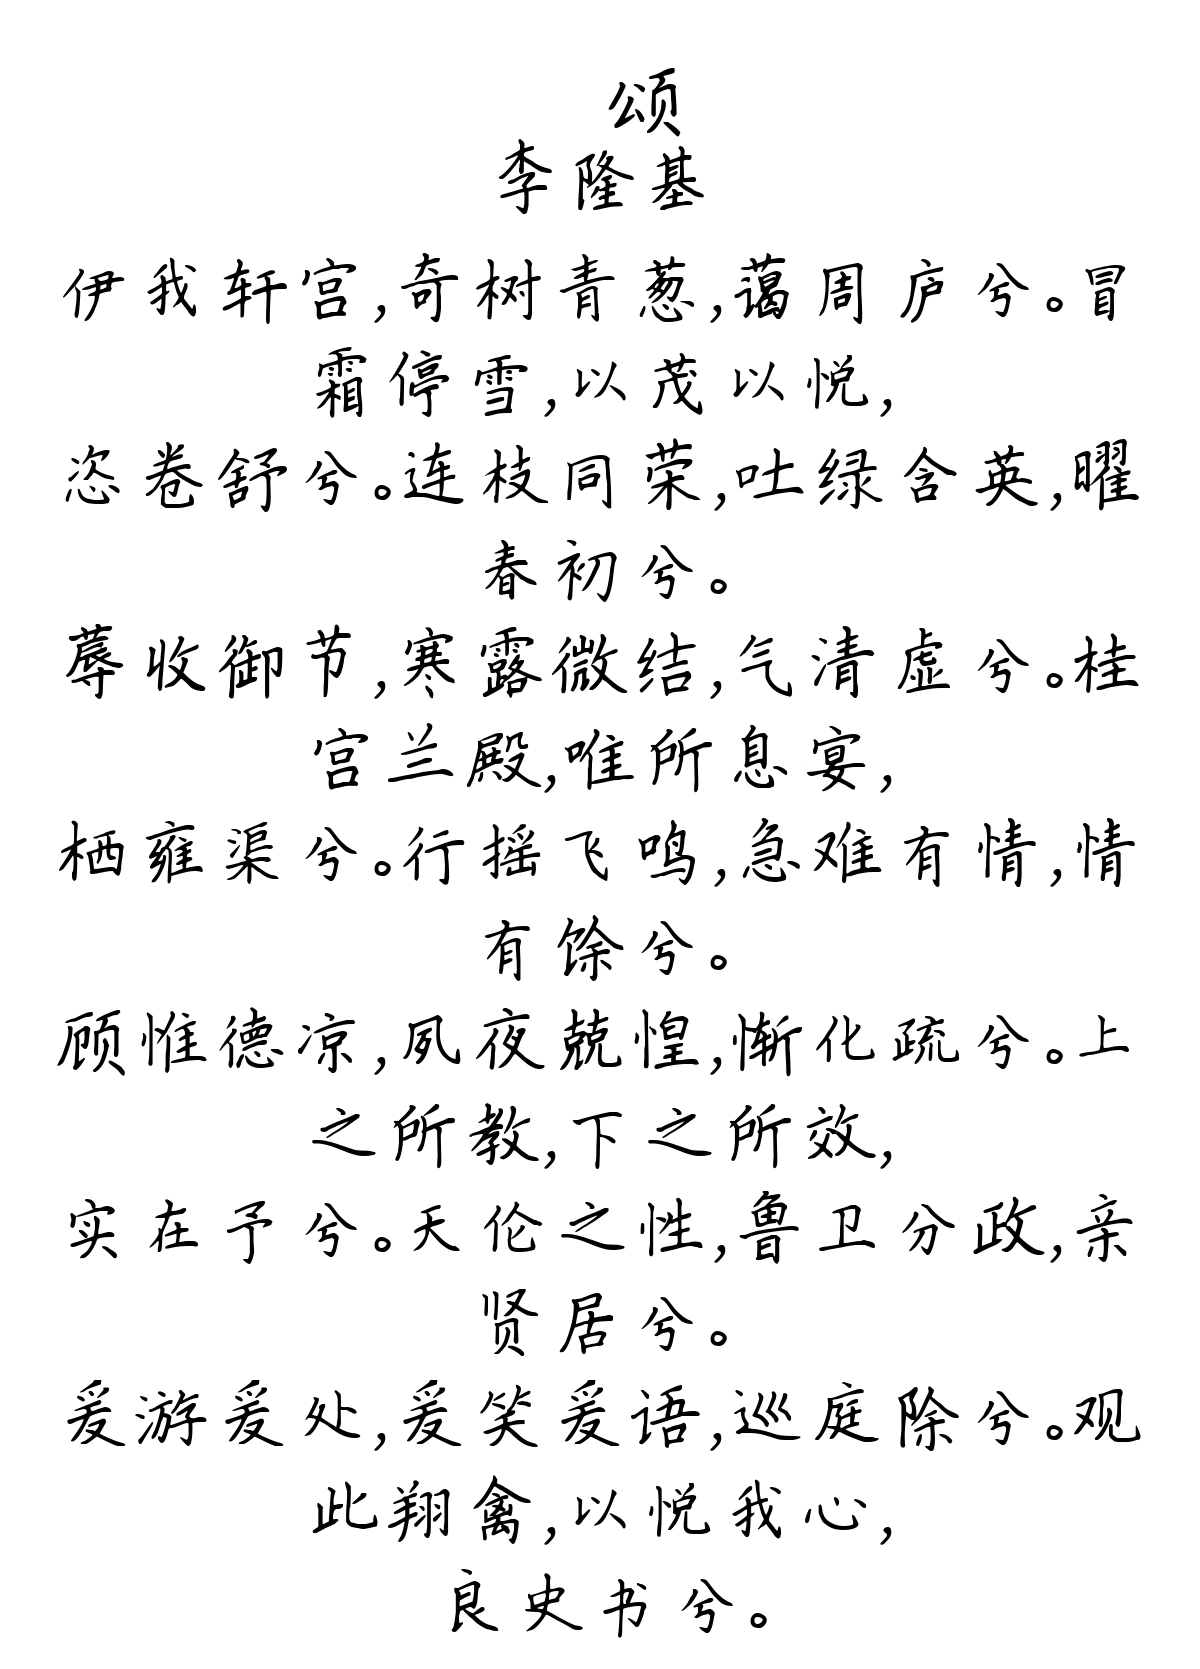 颂
李隆基
伊我轩宫,奇树青葱,蔼周庐兮。冒
霜停雪,以茂以悦,
恣卷舒兮。连枝同荣,吐绿含英,曜
春初兮。
蓐收御节,寒露微结,气清虚兮。桂
宫兰殿,唯所息宴,
栖雍渠兮。行摇飞鸣,急难有情,情
有馀兮。
顾惟德凉,夙夜兢惶,惭化疏兮。上
之所教,下之所效,
实在予兮。天伦之性,鲁卫分政,亲
贤居兮。
爰游爰处,爰笑爰语,巡庭除兮。观
此翔禽,以悦我心,
良史书兮。